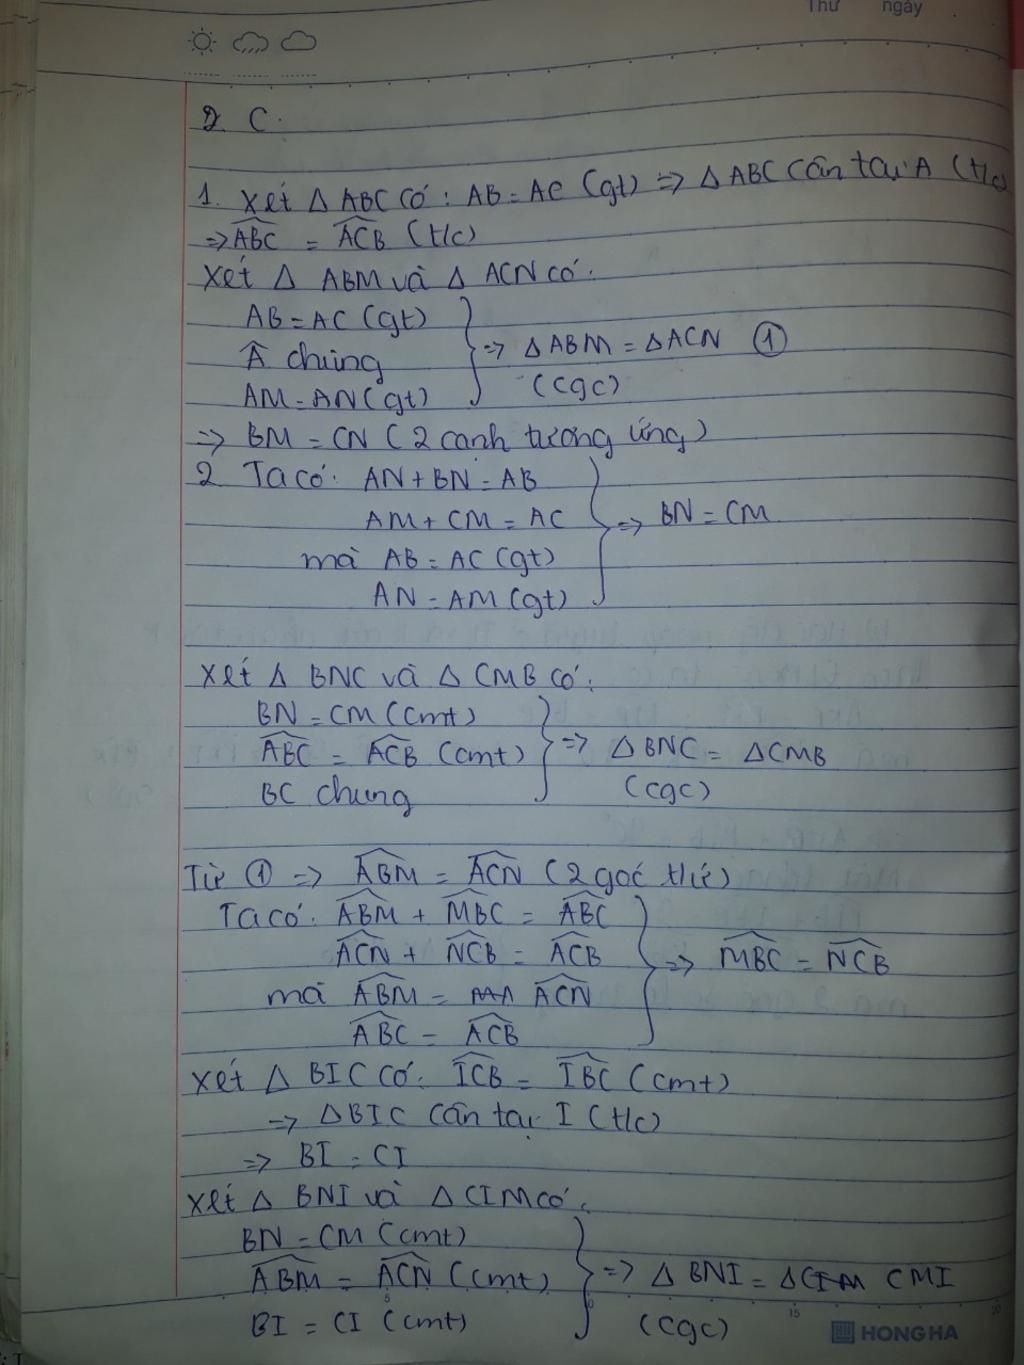 Thứ ngày
2 C.
1. Xét Δ ABC có: AB = AC (gt) => Δ ABC cân tại A (t/c)
=> \widehat{ABC} = \widehat{ACB} (t/c)
Xét Δ ABM và Δ ACN có:
AB = AC (gt)
Â chung
=> Δ ABM = Δ ACN ①
(cgc)
AM = AN (gt)
=> BM = CN (2 cạnh tương ứng)
2 Ta có: AN + BN = AB
AM + CM = AC
=> BN = CM
mà AB = AC (gt)
AN = AM (gt)
Xét Δ BNC và Δ CMB có:
BN = CM (cmt)
\widehat{ABC} = \widehat{ACB} (cmt)
=> Δ BNC = Δ CMB
BC chung
(cgc)
Từ ① => \widehat{ABM} = \widehat{ACN} (2 góc t/ư)
Ta có: \widehat{ABM} + \widehat{MBC} = \widehat{ABC}
\widehat{ACN} + \widehat{NCB} = \widehat{ACB}
=> \widehat{MBC} = \widehat{NCB}
mà \widehat{ABM} = \widehat{ACN}
\widehat{ABC} = \widehat{ACB}
Xét Δ BIC có: \widehat{ICB} = \widehat{IBC} (cmt)
=> Δ BIC cân tại I (t/c)
=> BI = CI
Xét Δ BNI và Δ CIM có:
BN = CM (cmt)
\widehat{ABM} = \widehat{ACN} (cmt)
=> Δ BNI = Δ CMI
BI = CI (cmt)
(cgc)
5 10 15 20
HONG HA